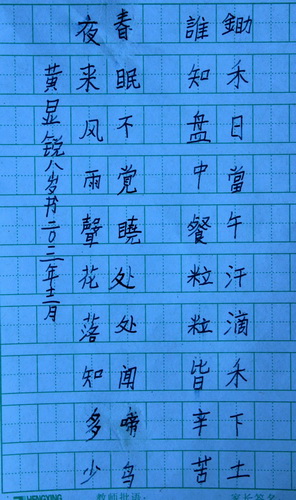 鋤禾日當午汗滴禾下土
誰知盤中餐粒粒皆辛苦
春眠不觉曉处处闻啼鸟
夜来风雨聲花落知多少
黄显锐八岁书
HENGXING 教师批语: 家长签名